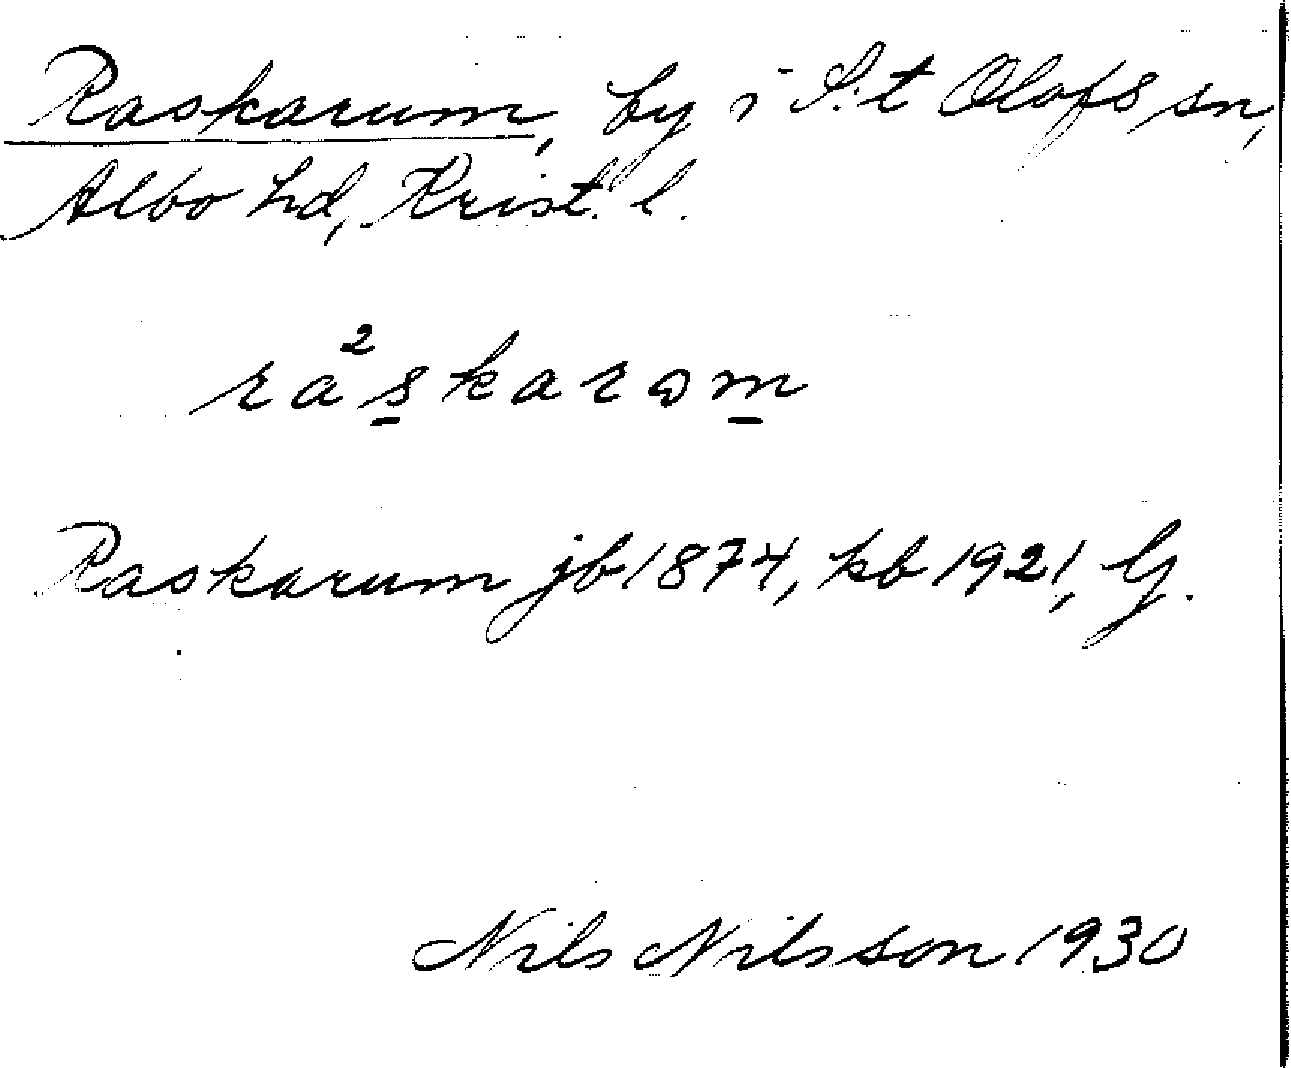 Raskarum, by i S:t Olofs sn,
Albo hd, Krist. l.
ra²skarɷm
Raskarum jb 1874, kb 1921, G.
Nils Nilsson 1930